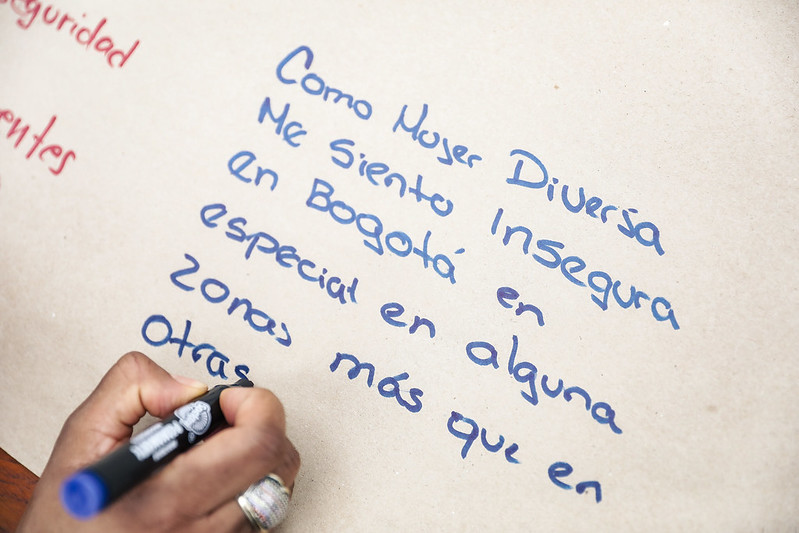 eguridad
entes
Como Mujer Diversa
Me siento Insegura
en Bogotá en
especial en alguna
zonas más que en
Otras